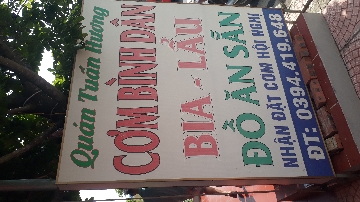 Quán Tuấn Hường
CƠM BÌNH DÂN
BIA - LẨU
ĐỒ ĂN SẴN
NHẬN ĐẶT CƠM HỘI NGHỊ
ĐT: 0394.419.648